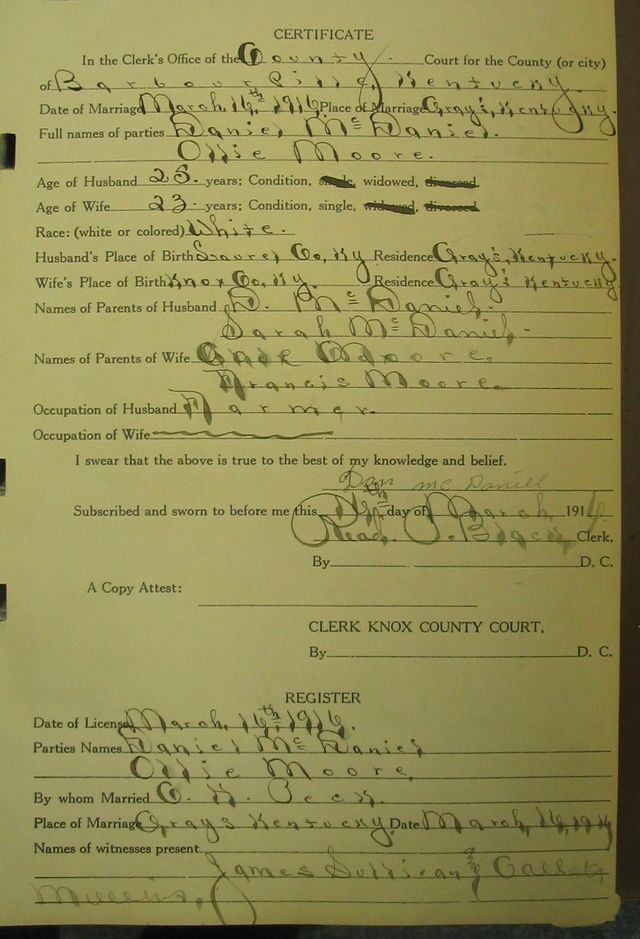 CERTIFICATE
In the Clerk's Office of the County Court for the County (or city)
of Barbourville, Kentucky.
Date of Marriage March, 16th 1916 Place of Marriage Gray's, Kentucky.
Full names of parties Daniel Mc Daniel.
Ollie Moore.
Age of Husband 25. years; Condition, single, widowed, divorced
Age of Wife 23 years; Condition, single, widowed, divorced
Race: (white or colored) White.
Husband's Place of Birth Laurel Co, Ky Residence Gray's, Kentucky.
Wife's Place of Birth Knox Co, Ky. Residence Gray's Kentucky
Names of Parents of Husband D. Mc Daniel.
Sarah Mc Daniel.
Names of Parents of Wife Moore.
Francis Moore.
Occupation of Husband Farmer.
Occupation of Wife
I swear that the above is true to the best of my knowledge and belief.
Dan mc Daniell
Subscribed and sworn to before me this 16th day of March 1916
Read P. Black Clerk.
By D. C.
A Copy Attest:
CLERK KNOX COUNTY COURT,
By D. C.
REGISTER
Date of License March, 16th, 1916.
Parties Names Daniel Mc Daniel
Ollie Moore,
By whom Married Peck.
Place of Marriage Grays Kentucky. Date March, 16, 1916
Names of witnesses present
James Sullivan &
Mullins,